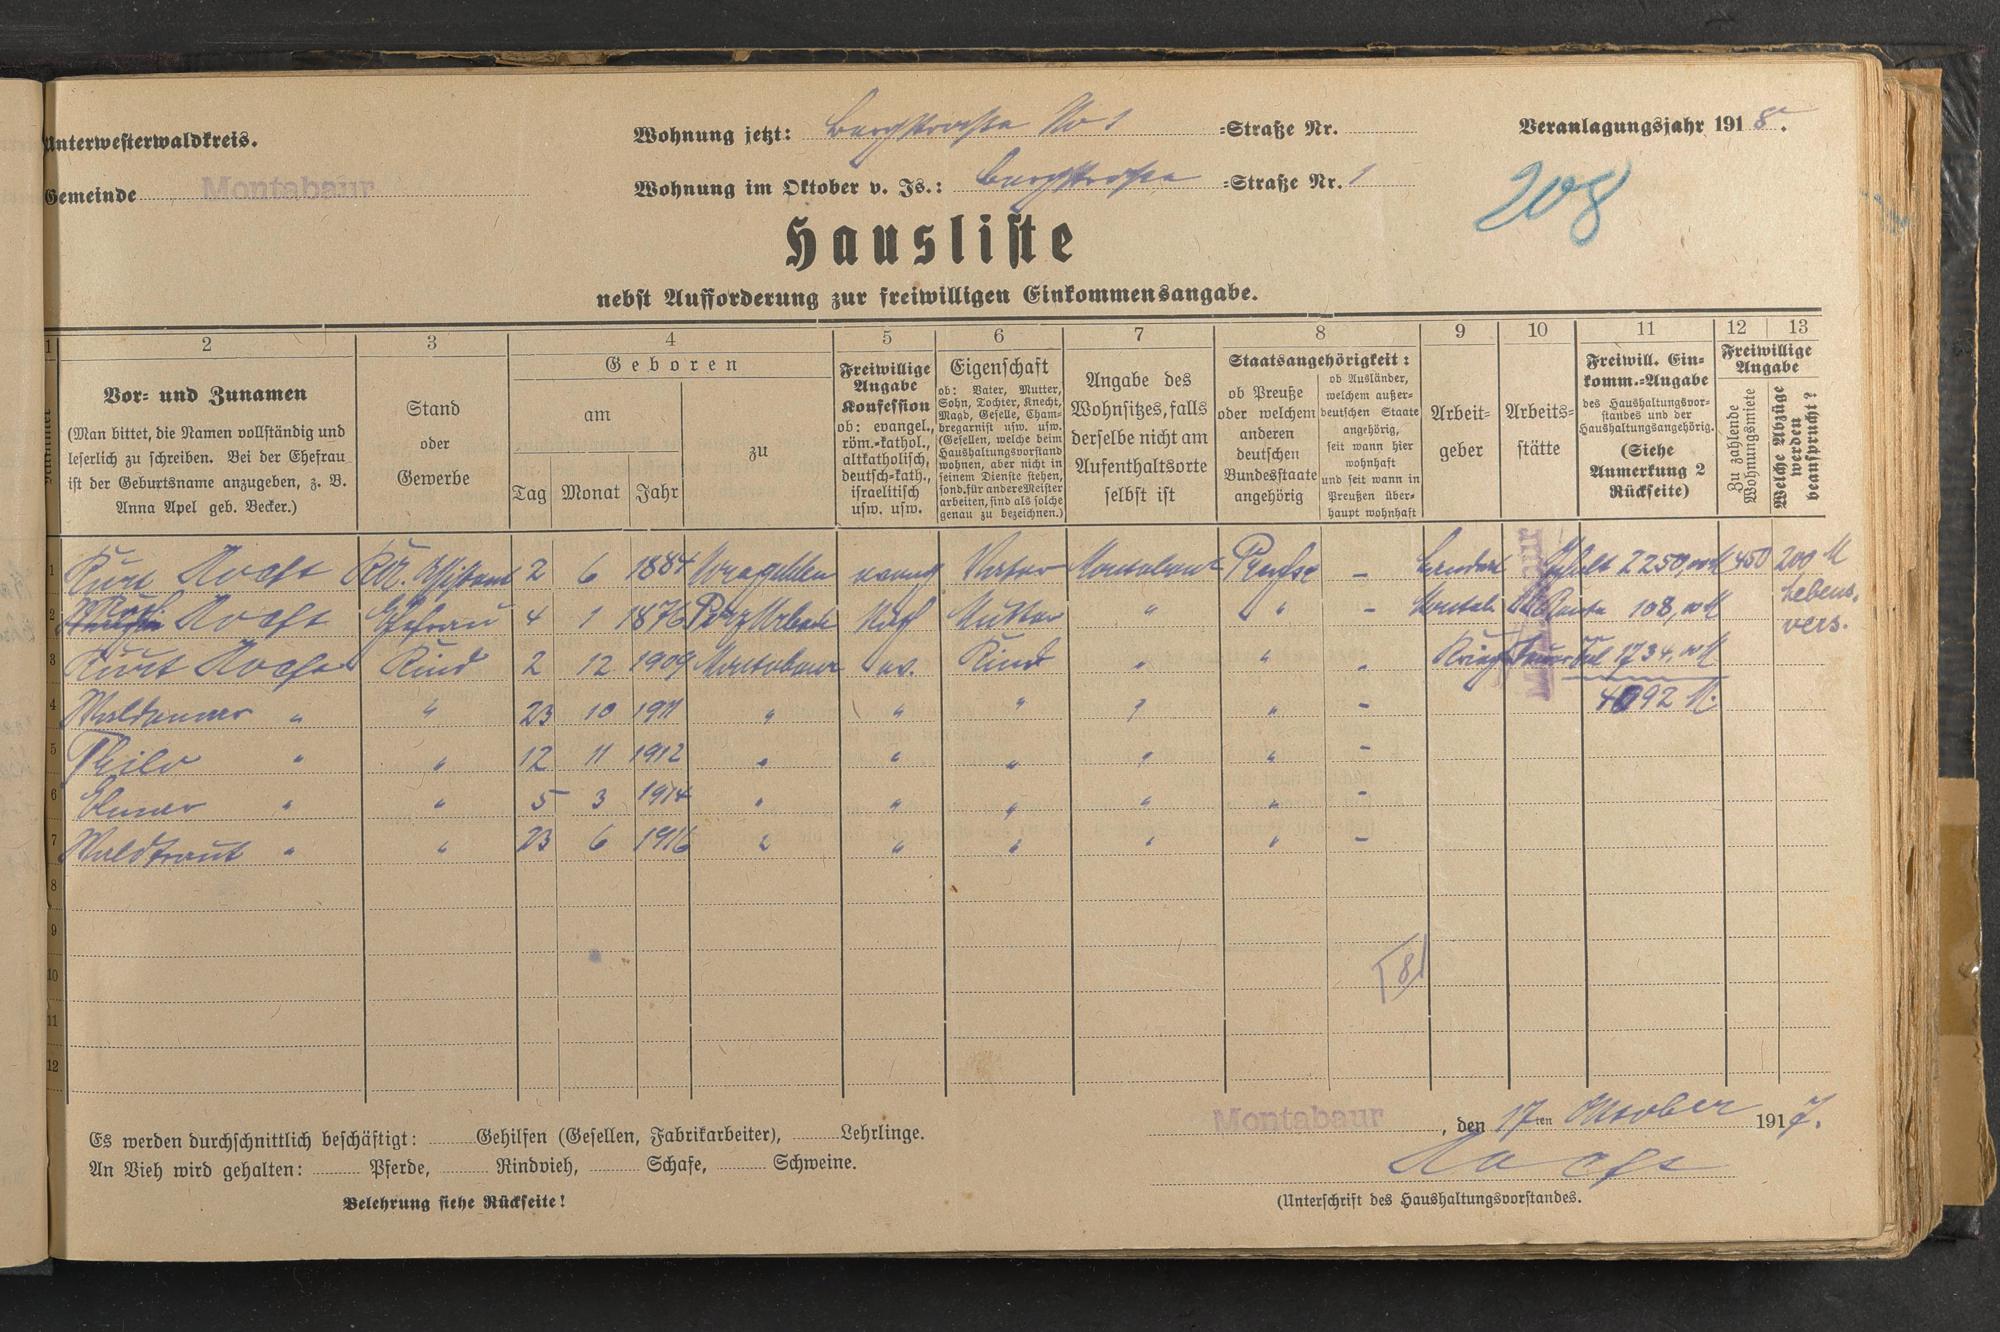 Unterwesterwaldkreis.
Wohnung jetzt: Bergstraße No 1 =Straße Nr.
Veranlagungsjahr 1918.
Gemeinde Montabaur
Wohnung im Oktober v. Js.: Bergstraße =Straße Nr. 1
208
Hausliste
nebst Aufforderung zur freiwilligen Einkommensangabe.
1 2 3 4 5 6 7 8 9 10 11 12 13
Nummer
Vor- und Zunamen
(Man bittet, die Namen vollständig und
leserlich zu schreiben. Bei der Ehefrau
ist der Geburtsname anzugeben, z. B.
Anna Apel geb. Becker.)
Stand
oder
Gewerbe
Geboren
am
Tag Monat Jahr
zu
Freiwillige
Angabe
Konfession
ob: evangel.,
röm.=kathol.,
altkatholisch,
deutsch=kath.,
israelitisch
usw. usw.
Eigenschaft
ob: Vater, Mutter,
Sohn, Tochter, Knecht,
Magd, Geselle, Cham=
bregarnist usw. usw.
(Gesellen, welche beim
Haushaltungsvorstand
wohnen, aber nicht in
seinem Dienste stehen,
sond. für andere Meister
arbeiten, sind als solche
genau zu bezeichnen.)
Angabe des
Wohnsitzes, falls
derselbe nicht am
Aufenthaltsorte
selbst ist
Staatsangehörigkeit:
ob Preuße
oder welchem
anderen
deutschen
Bundesstaate
angehörig
ob Ausländer,
welchem außer=
deutschen Staate
angehörig,
seit wann hier
wohnhaft
und seit wann in
Preußen über=
haupt wohnhaft
Arbeit=
geber
Arbeits=
stätte
Freiwill. Ein=
komm.=Angabe
des Haushaltungsvor=
standes und der
Haushaltungsangehörig.
(Siehe
Anmerkung 2
Rückseite)
Freiwillige
Angabe
Zu zahlende
Wohnungsmiete
Welche Abzüge
werden
beansprucht?
1 Kurt 2 6 1884 evang Vater Montabaur Preuße – Gehalt 2250,00 M 450 200 M
2 Ehefrau 4 1 1876 Mutter " " – Rente 108,00 M Lebens.
vers.
3 Kurt Kind 2 12 1909 Montabaur ev. Kind " " 1734,00 M
Waldemar " " 23 10 1911 " " " " " – 4092 M.
5 Thilo " " 12 11 1912 " " " " " –
6 Elmar " " 5 3 1914 " " " " " –
7 Waldtraut " " 23 6 1916 " " " " " –
8
9
10
11
12
Es werden durchschnittlich beschäftigt: Gehilfen (Gesellen, Fabrikarbeiter), Lehrlinge.
An Vieh wird gehalten: Pferde, Rindvieh, Schafe, Schweine.
Belehrung siehe Rückseite!
Montabaur, den 17ten Oktober 1917.
(Unterschrift des Haushaltungsvorstandes.